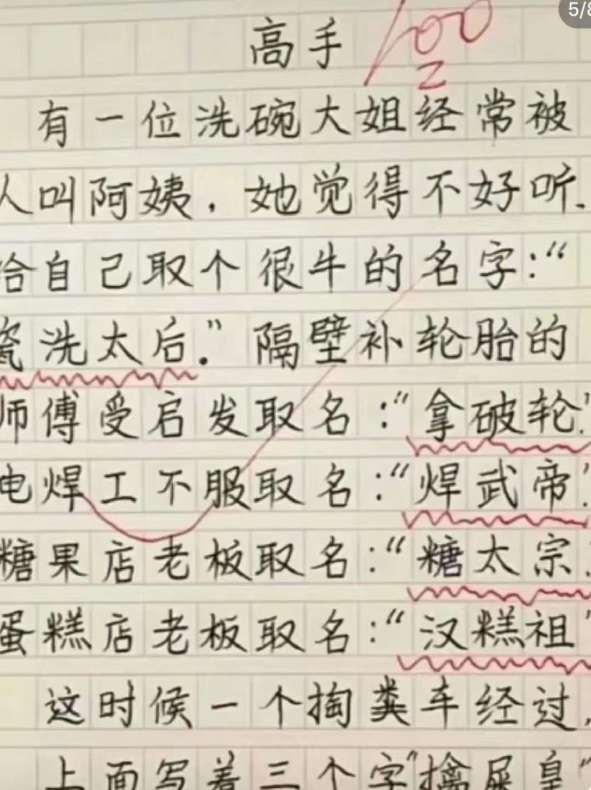 5/8
高手
100
有一位洗碗大姐经常被
人叫阿姨，她觉得不好听.
给自己取个很牛的名字:“
瓷洗太后.”隔壁补轮胎的
师傅受启发取名:“拿破轮”
电焊工不服取名:“焊武帝”
糖果店老板取名:“糖太宗.
蛋糕店老板取名:“汉糕祖”
这时候一个掏粪车经过,
上面写着三个字“擒屎皇”